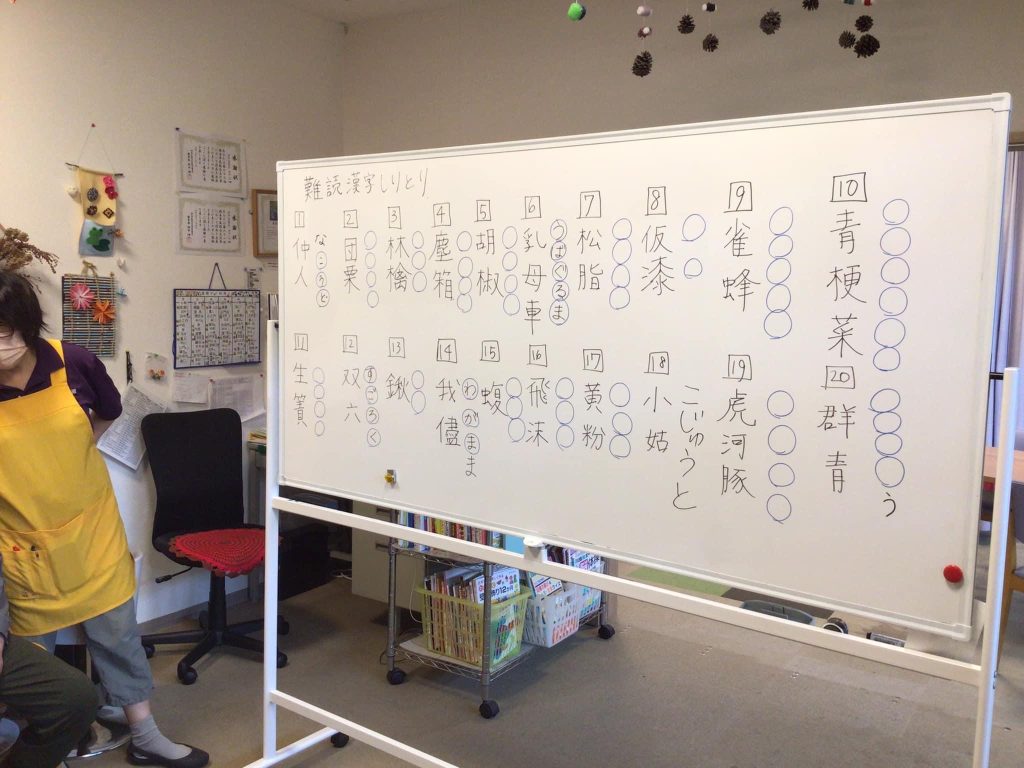 難読漢字しりとり
1 仲人 なこうど
2 団栗
3 林檎
4 塵箱
5 胡椒
6 乳母車 うばぐるま
7 松脂
8 仮漆
9 雀蜂
10 青梗菜
11 生簀
12 双六 すごろく
13 鍬
14 我儘 わがまま
15 蝮
16 飛沫
17 黄粉
18 小姑 こじゅうと
19 虎河豚
20 群青 う